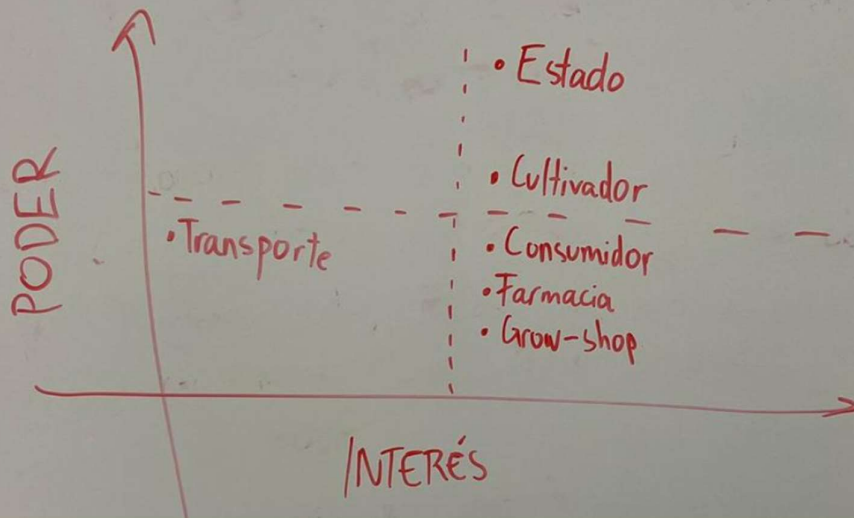 PODER
• Estado
• Cultivador
• Transporte
• Consumidor
• Farmacia
• Grow-shop
INTERÉS